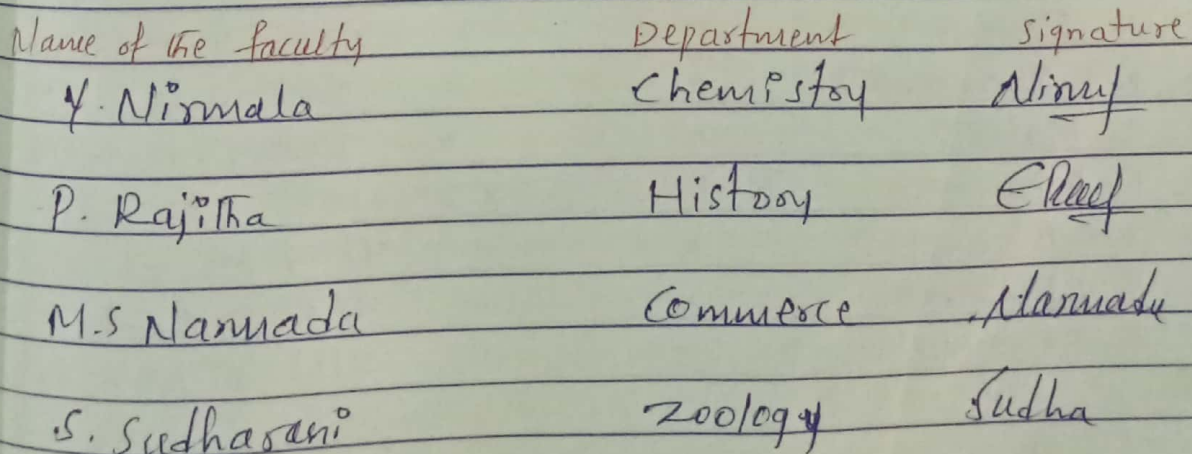 Name of the faculty Department Signature
Y. Nirmala Chemistry Nirm
P. Rajitha History
M.S Narmada Commerce Narmada
S. Sudharani Zoology Sudha